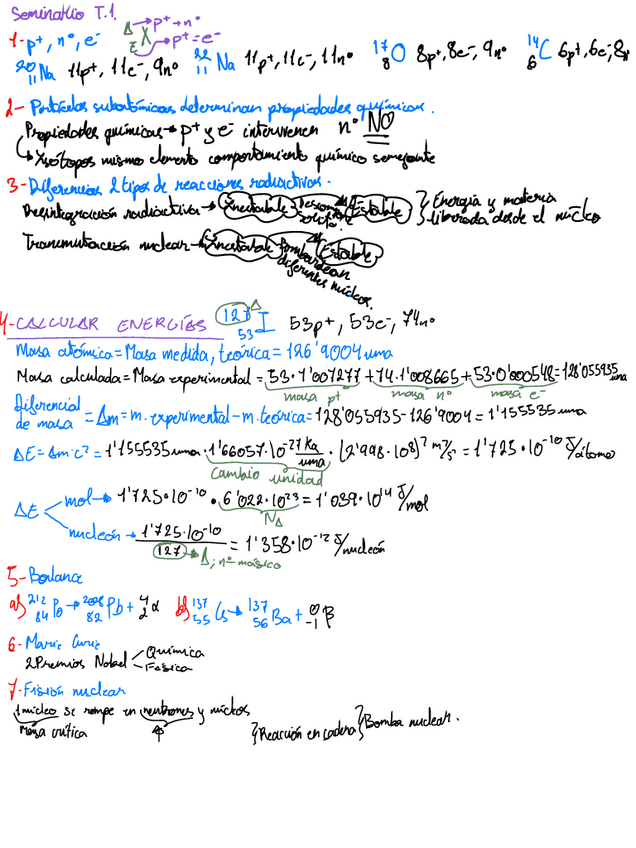 Seminario T.1.
1- p⁺, n⁰, e⁻ A Z X p⁺+n⁰ p⁺=e⁻
20 11 Na 11p⁺, 11e⁻, 9n⁰ 22 11 Na 11p⁺, 11e⁻, 11n⁰ 17 8 O 8p⁺, 8e⁻, 9n⁰ 14 6 C 6p⁺, 6e⁻, 8n
2- Partículas subatómicas determinan propiedades químicas.
Propiedades químicas → p⁺ y e⁻ intervienen n⁰ NO
↳ Isótopos mismo elemento comportamiento químico semejante
3- Diferencias 2 tipos de reacciones radiactivas.
Desintegración radiactiva → Inestable Estable } Energía y materia
liberada desde el núcleo
Transmutación nuclear → Inestable Estable
bombardean
diferentes núcleos.
4- CALCULAR ENERGÍAS 127 A 53 I 53p⁺, 53e⁻, 74n⁰
Masa atómica = Masa medida, teórica = 126'9004 uma
Masa calculada = Masa experimental = 53·1'007277 + 74·1'008665 + 53·0'000548 = 128'055935 uma
masa p⁺ masa n⁰ masa e⁻
Diferencial
de masa = Δm = m. experimental - m. teórica = 128'055935 - 126'9004 = 1'155535 uma
ΔE = Δm·c² = 1'155535 uma · 1'66057·10⁻²⁷ Kg/uma · (2'998·10⁸)² m²/s² = 1'725·10⁻¹⁰ J/átomo
cambio unidad
ΔE mol → 1'725·10⁻¹⁰ · 6'022·10²³ = 1'039·10¹⁴ J/mol
NA
nucleón → 1'725·10⁻¹⁰ / 127 = 1'358·10⁻¹² J/nucleón
→ A; nº másico
5- Balance
a) 212 84 Po → 208 82 Pb + 4 2 α b) 137 55 Cs → 137 56 Ba + 0 -1 β
6- Marie Curie
2 Premios Nobel Química
Física
7- Fisión nuclear
1 núcleo se rompe en neutrones y núcleos
Masa crítica } Reacción en cadena } Bomba nuclear.